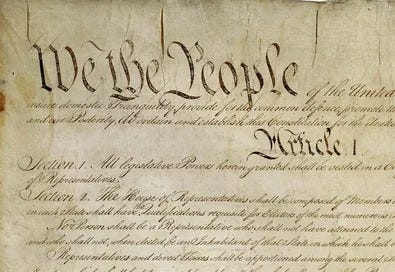 We the People of the United
insure domestic Tranquility, provide for the common defence, promote the
and our Posterity, do ordain and establish this Constitution for the United
Article. I.
Section. 1. All legislative Powers herein granted shall be vested in a Co
of Representatives.
Section. 2. The House of Representatives shall be composed of Members
in each State shall have the Qualifications requisite for Electors of the most numerous
No Person shall be a Representative who shall not have attained to the
and who shall not, when elected, be an Inhabitant of that State in which he shall
Representatives and direct Taxes shall be apportioned among the several